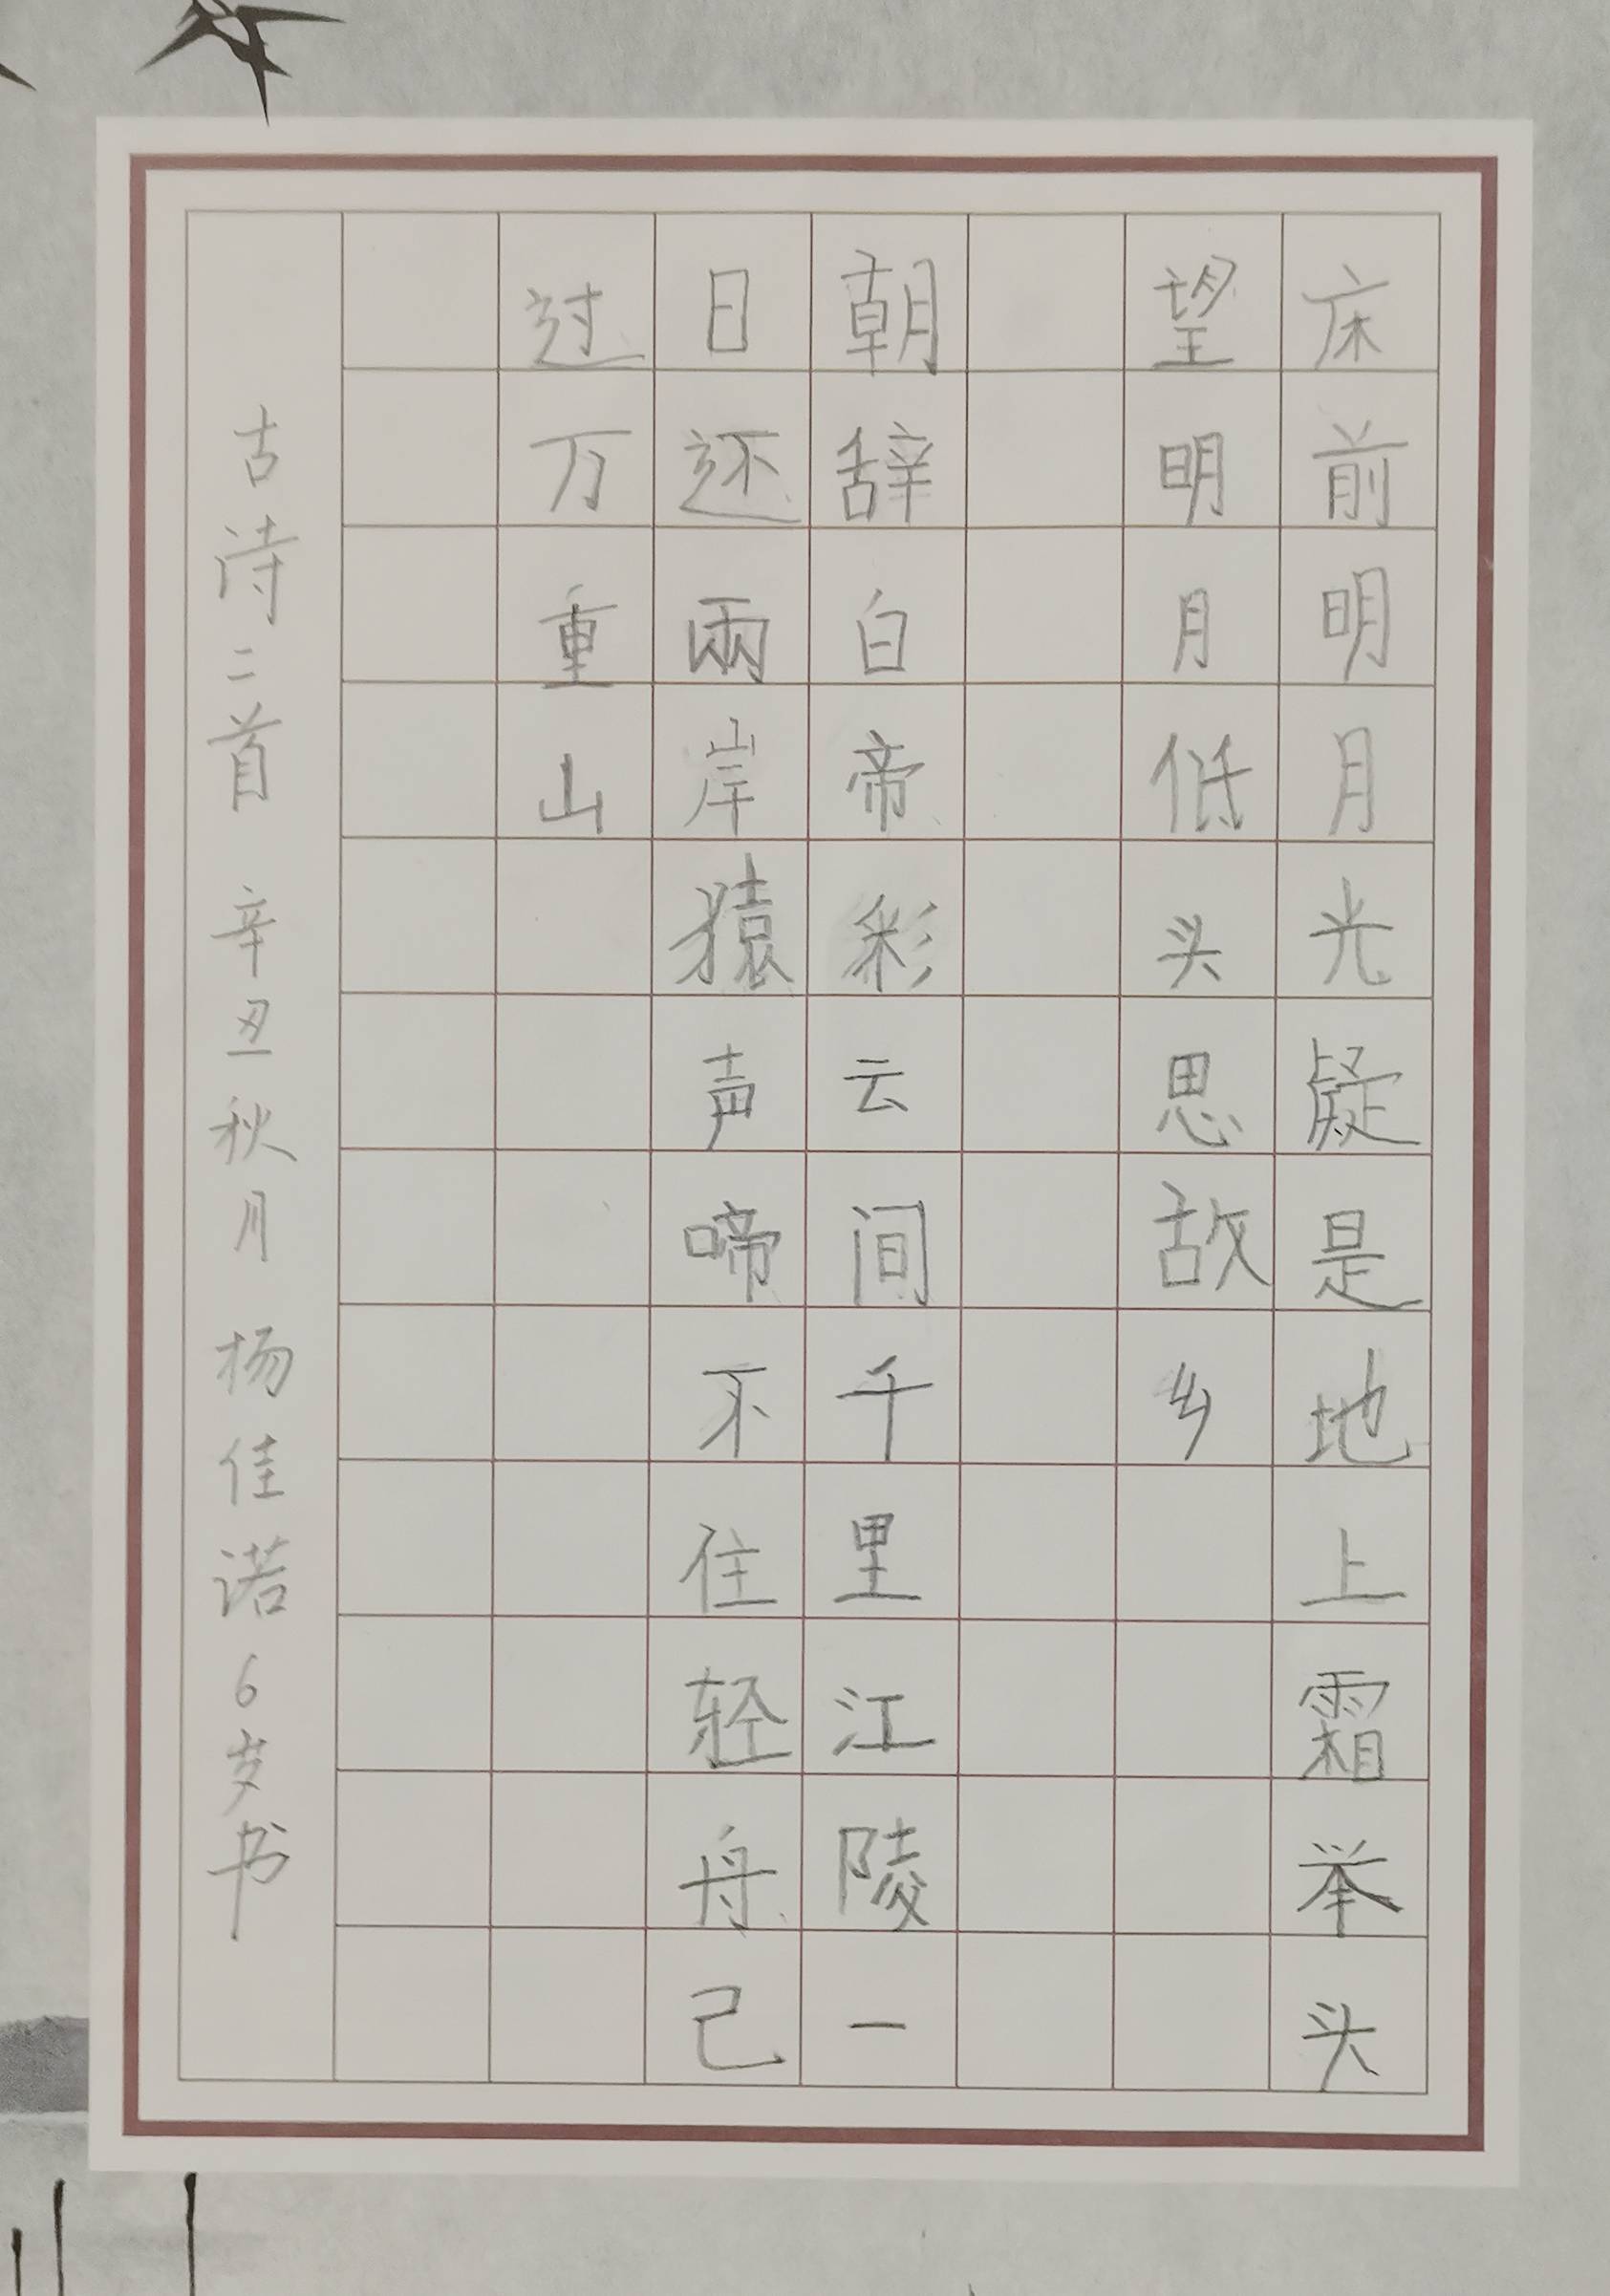 床前明月光疑是地上霜举头
望明月低头思故乡
朝辞白帝彩云间千里江陵一
日还兩岸猿声啼不住轻舟己
过万重山
古诗二首 辛丑秋月 杨佳诺6岁书